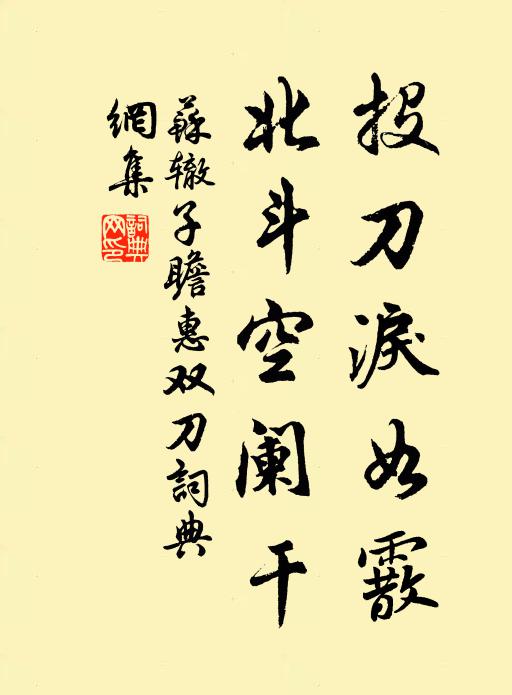 投刀淚如霰
北斗空阑干
蘇辙子瞻惠双刀詞典
網集
詞典
网印